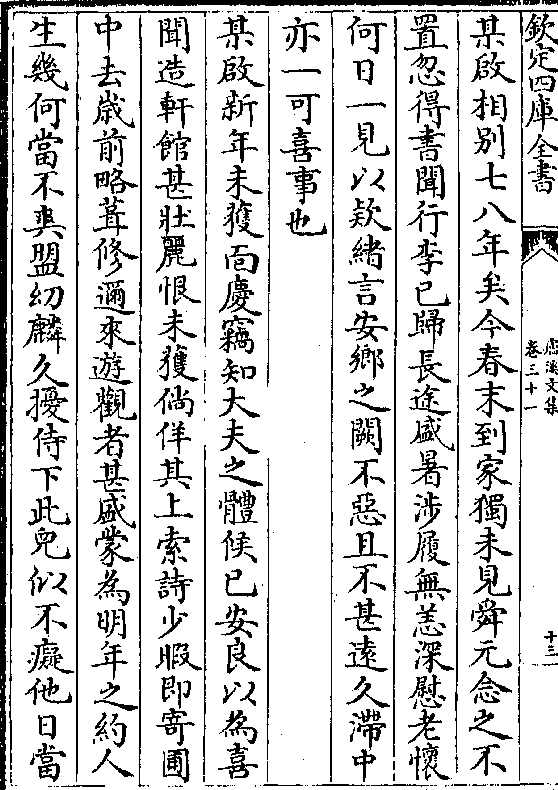 欽定四庫全書
盧溪文集
卷三十一
十三
某啟相別七八年矣今春末到家獨未見舜元念之不
置忽得書聞行李已歸長途盛暑涉履無恙深慰老懷
何日一見以欵緒言安鄉之闕不惡且不甚遠久滯中
亦一可喜事也
某啟新年未獲面慶竊知大夫之體候已安良以為喜
聞造軒館甚壯麗恨未獲倘佯其上索詩少暇即寄圃
中去歲前略葺修邇來遊觀者甚盛蒙為明年之約人
生幾何當不爽盟幼麟久擾侍下此兒似不癡他日當